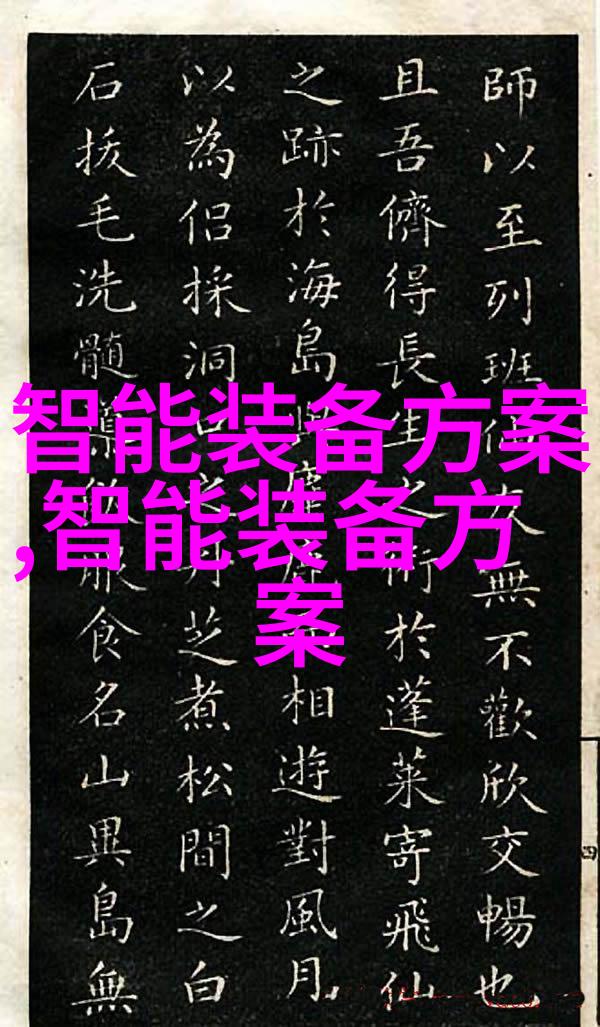 師以至列班無不歡欣交暢也
且吾儕得長生之術於蓬萊寄飛仙
之跡於海島與相遊對風月
以為侶採洞之芝煮松間之白
石拔毛洗髓服食名山異島無
智能装备方案
,智能装备方
案
四